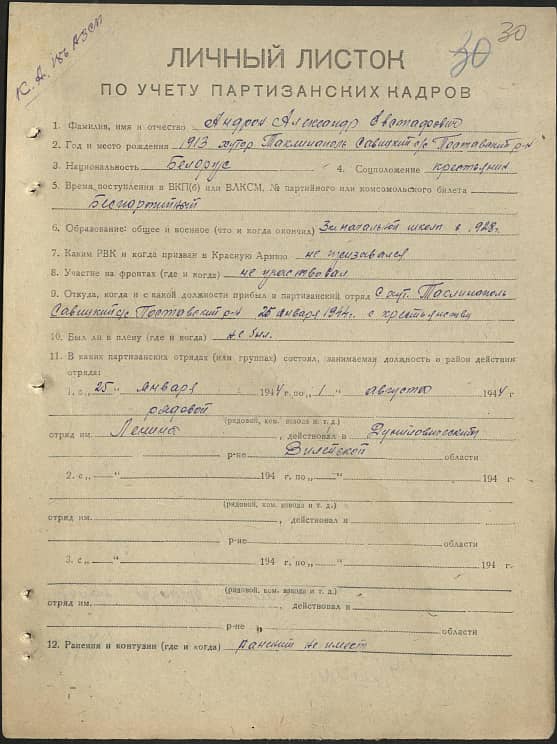 30 30
ЛИЧНЫЙ ЛИСТОК
ПО УЧЕТУ ПАРТИЗАНСКИХ КАДРОВ
1. Фамилия, имя и отчество Андрон Александр
2. Год и место рождения 1913 хутор Савицкий с/с Поставский р-н
3. Национальность Белорус 4. Соцположение крестьянин
5. Время поступления в ВКП(б) или ВЛКСМ, № партийного или комсомольского билета
Беспартийный
6. Образование: общее и военное (что и когда окончил) 3и начальной школы в 1928г.
7. Каким РВК и когда призван в Красную Армию не призывался
8. Участие на фронтах (где и когда) не участвовал
9. Откуда, когда и с какой должности прибыл в партизанский отряд с хут.
Савицкий с/с Поставский р-н 25 января 1944г. с крестьянства
10. Был ли в плену (где и когда) не был.
11. В каких партизанских отрядах (или группах) состоял, занимаемая должность и район действия
отряда:
1. с „25“ января 1944 г. по „1“ августа 1944 г
рядовой
(рядовой, ком. взвода и т. д.)
отряд им. Ленина, действовал в
р-не Вилейской области
2. с „ “ 194 г. по „ “ 194 г.
(рядовой, ком. взвода и т. д.)
отряд им. , действовал в
р-не области
3. с „ “ 194 г. по „ “ 194 г.
(рядовой, ком. взвода и т. д.)
отряд им. , действовал в
р-не области
12. Ранения и контузии (где и когда) ранений не имеет